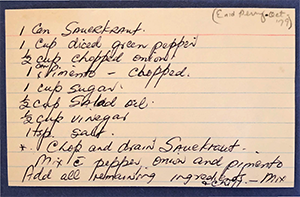 (Enid Perry - Oct. 79)
1 Can Sauerkraut.
1 Cup diced green pepper
½ cup chopped onion
1 Pimento - chopped.
1 cup sugar.
½ cup salad oil.
½ cup vinegar
1 tsp. salt.
* Chop and drain Sauerkraut.
Mix c̄ pepper, onion and pimento
Add all remaining ingredients - Mix